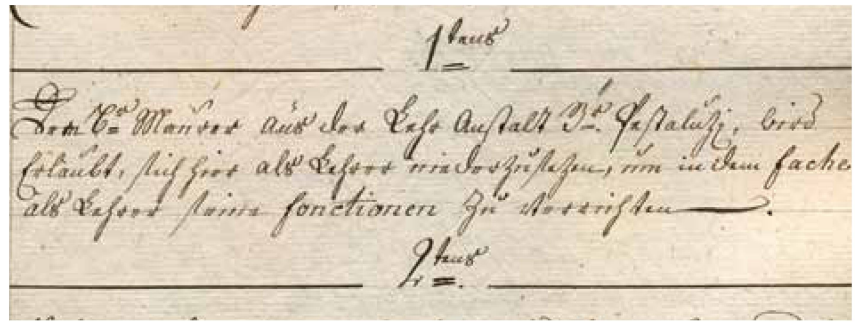 1tens
Dem Br Maurer aus der Lehr Anstalt Br. Pestaluzi, wird
Erlaubt, sich hier als Lehrer niederzusetzen, um in dem fache
als Lehrer seine fonctionen zu verrichten.
2tens